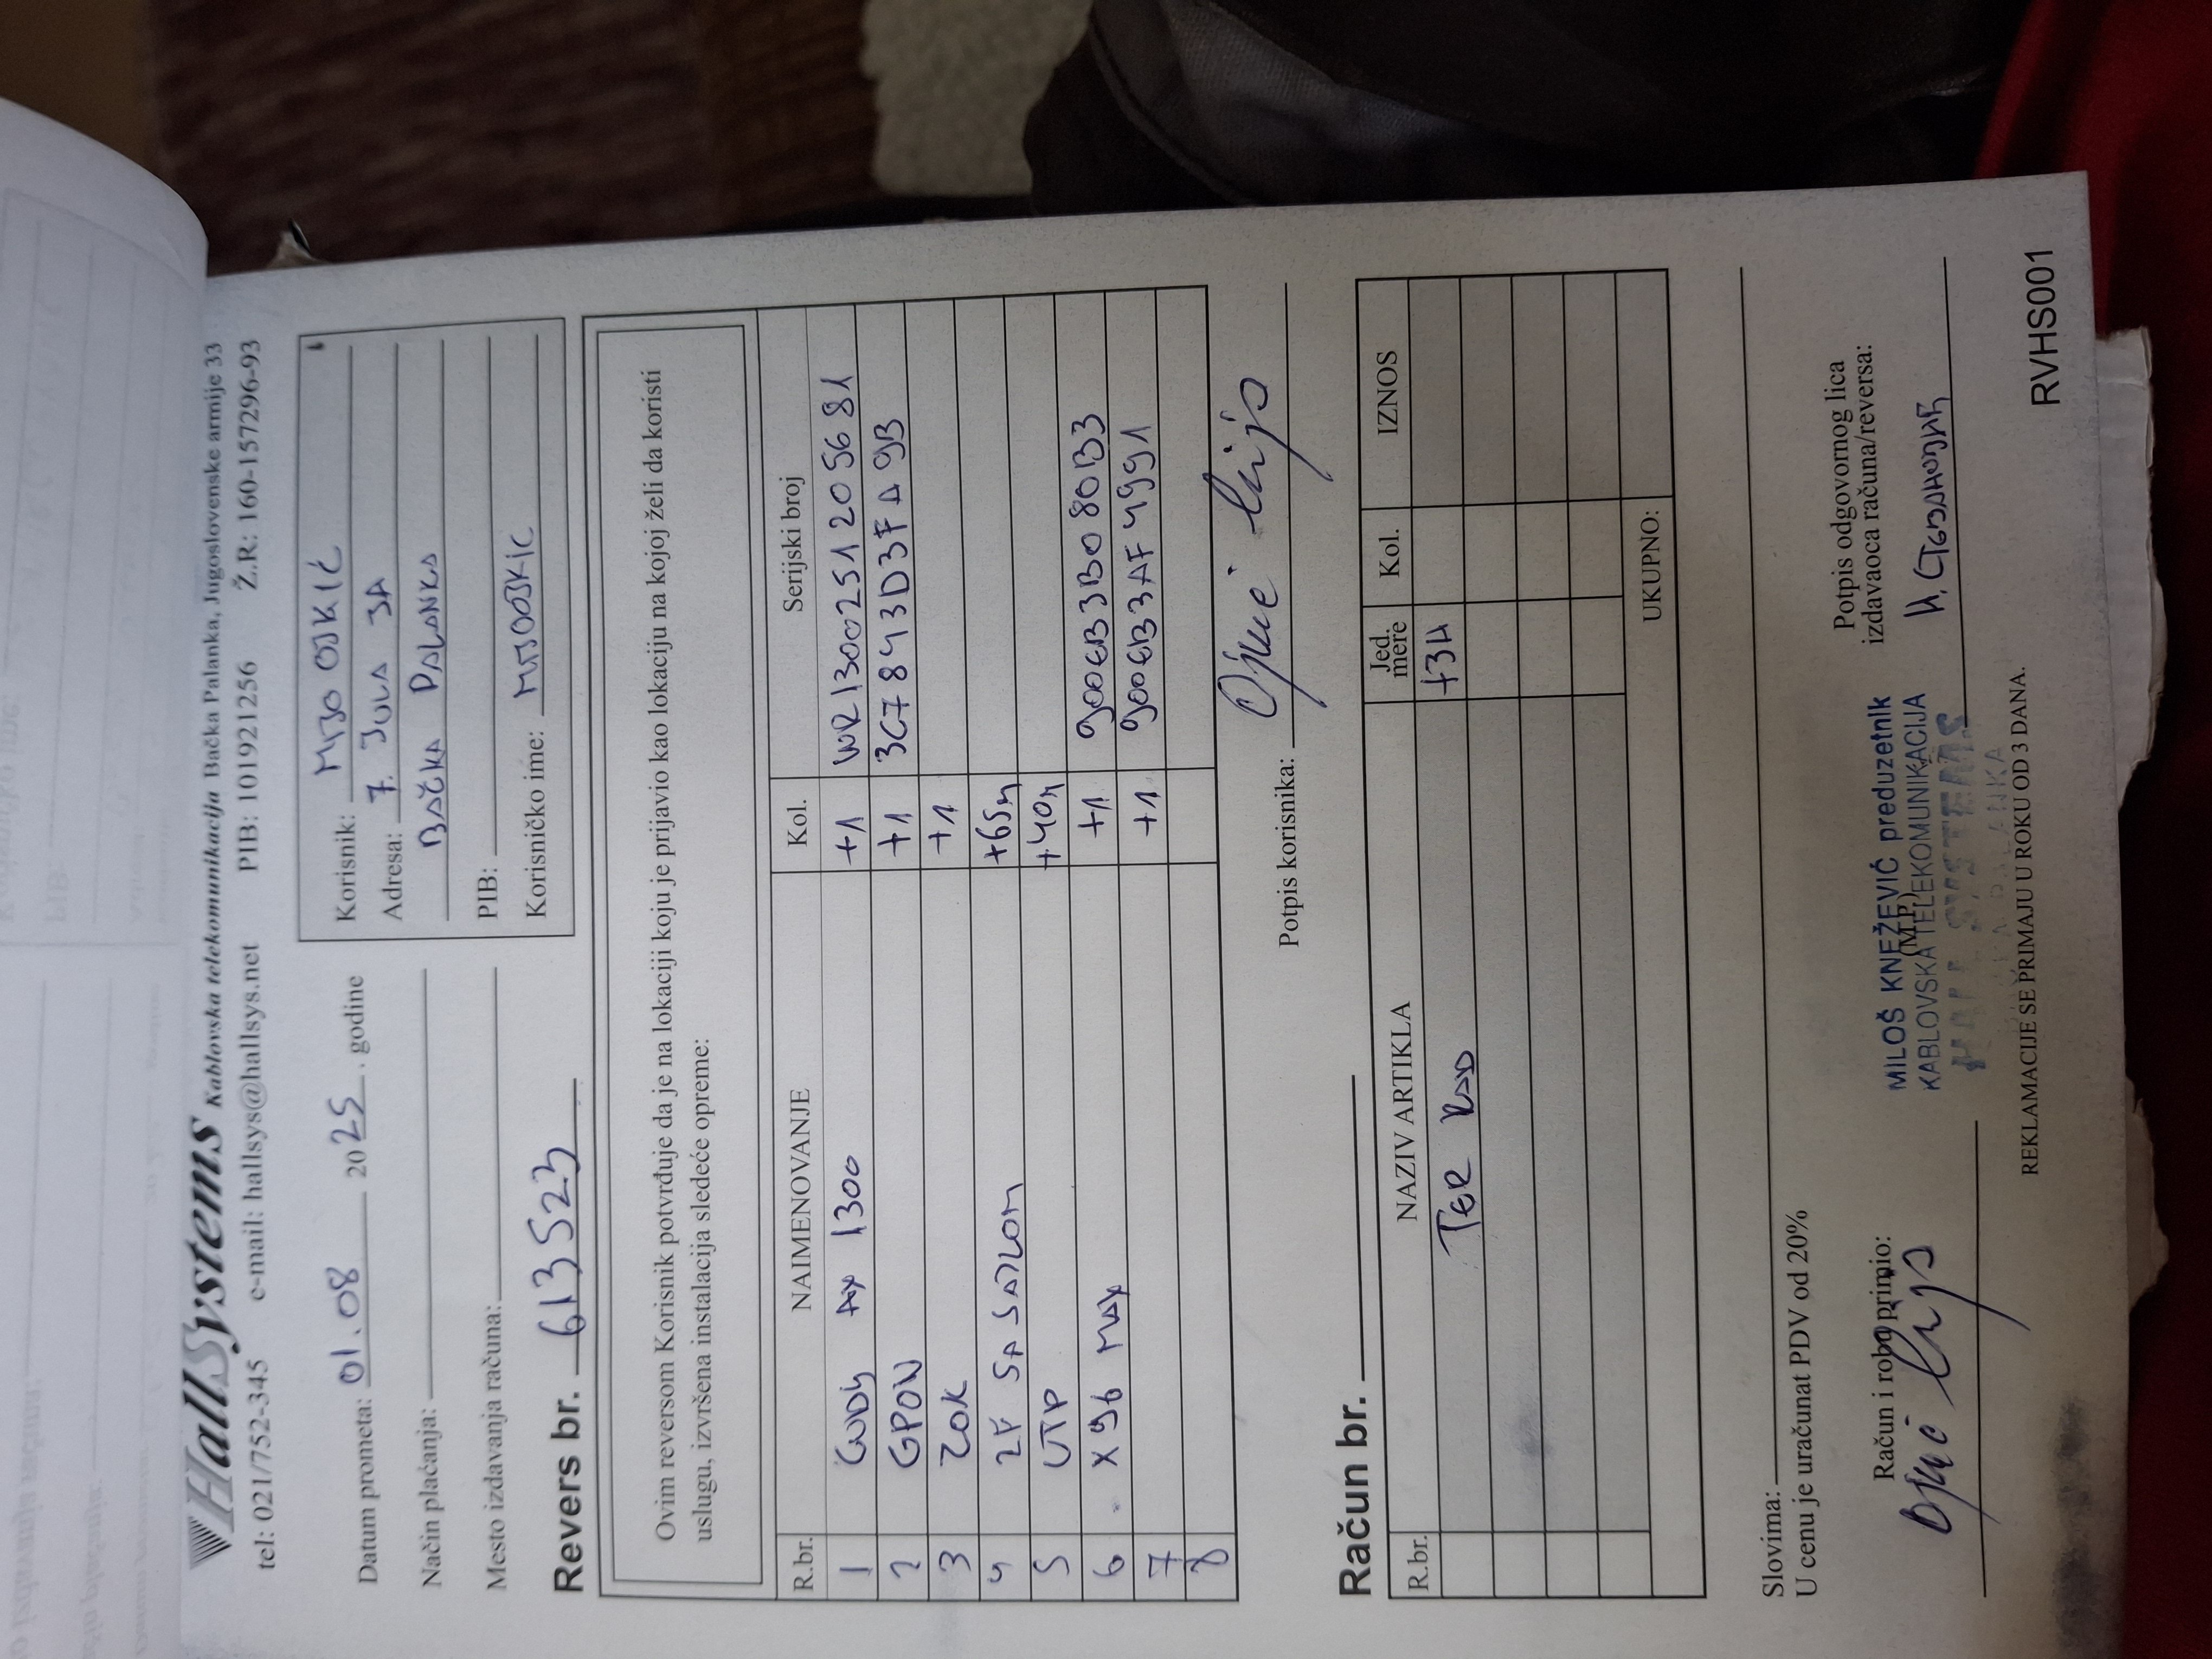 HallSystems Kablovska telekomunikacija Bačka Palanka, Jugoslovenske armije 33
tel: 021/752-345 e-mail: hallsys@hallsys.net PIB: 101921256 Ž.R: 160-157296-93
Datum prometa: 01.08 2025. godine
Način plaćanja:
Mesto izdavanja računa:
Korisnik: MIJO OJKIĆ
Adresa: 7. JULA 3A
BAČKA PALANKA
PIB:
Korisničko ime: MIJOOJKIC
Revers br. 613523
Ovim reversom Korisnik potvrđuje da je na lokaciji koju je prijavio kao lokaciju na kojoj želi da koristi
uslugu, izvršena instalacija sledeće opreme:
R.br. NAIMENOVANJE Kol. Serijski broj
1 CUDY AX 1300 +1 WR13002512056 81
2 GPON +1 3C7843D3FA9B
3 ZOK +1
4 2F SA SAJLOM +65m
5 UTP +40m
6 X96 MAX +1 9006B3B080B3
7 +1 9006B3AF4991
8
Potpis korisnika: Ojkić Mijo
Račun br.
R.br. NAZIV ARTIKLA Jed. mere Kol. IZNOS
TER RAD +3H
UKUPNO:
Slovima:
U cenu je uračunat PDV od 20%
Račun i robu primio:
Ojkić Mijo
MILOŠ KNEŽEVIĆ preduzetnik
KABLOVSKA TELEKOMUNIKACIJA
(MP)
HALL SYSTEMS
Potpis odgovornog lica
izdavaoca računa/reversa:
REKLAMACIJE SE PRIMAJU U ROKU OD 3 DANA.
RVHS001